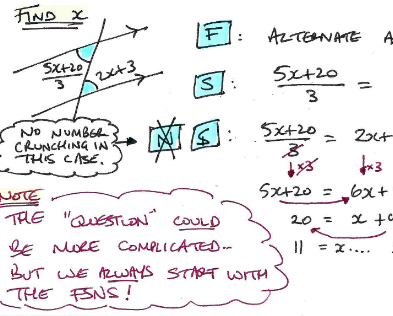 FIND x
5x+20
3
2x+3
F : ALTERNATE A
S : 5x+20 =
3
NO NUMBER
CRUNCHING IN
THIS CASE.
N S : 5x+20 = 2x+
3
x3 x3
5x+20 = 6x+
20 = x+9
11 = x....
NOTE
THE "QUESTION" COULD
BE MORE COMPLICATED...
BUT WE ALWAYS START WITH
THE FSNS!